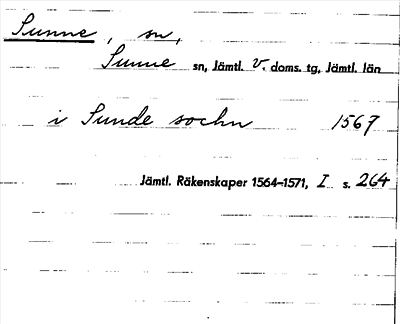 Sunne, sn,
Sunne sn, Jämtl. v. doms. tg, Jämtl. län
i Sunde sochn 1567
Jämtl. Räkenskaper 1564–1571, I s. 264